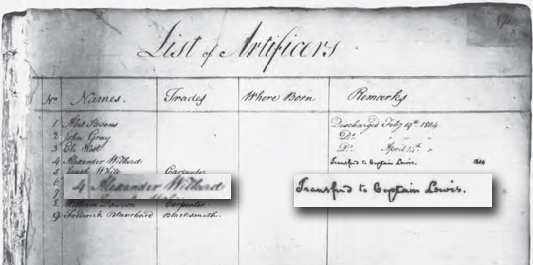 List of Artificers.
No Names. Trades Where Born Remarks
1 Abel Stevens Discharged Feby 14th 1804
2 John Gray Do " "
3 Eli West Do April 14th "
4 Alexander Willard Transfred to Captain Lewis. 1804
5 White Carpenter
6
4 Alexander Willard
Transfred to Captain Lewis.
7
8 William Dawson Carpenter
9 Frederick Blanchard Blacksmith.